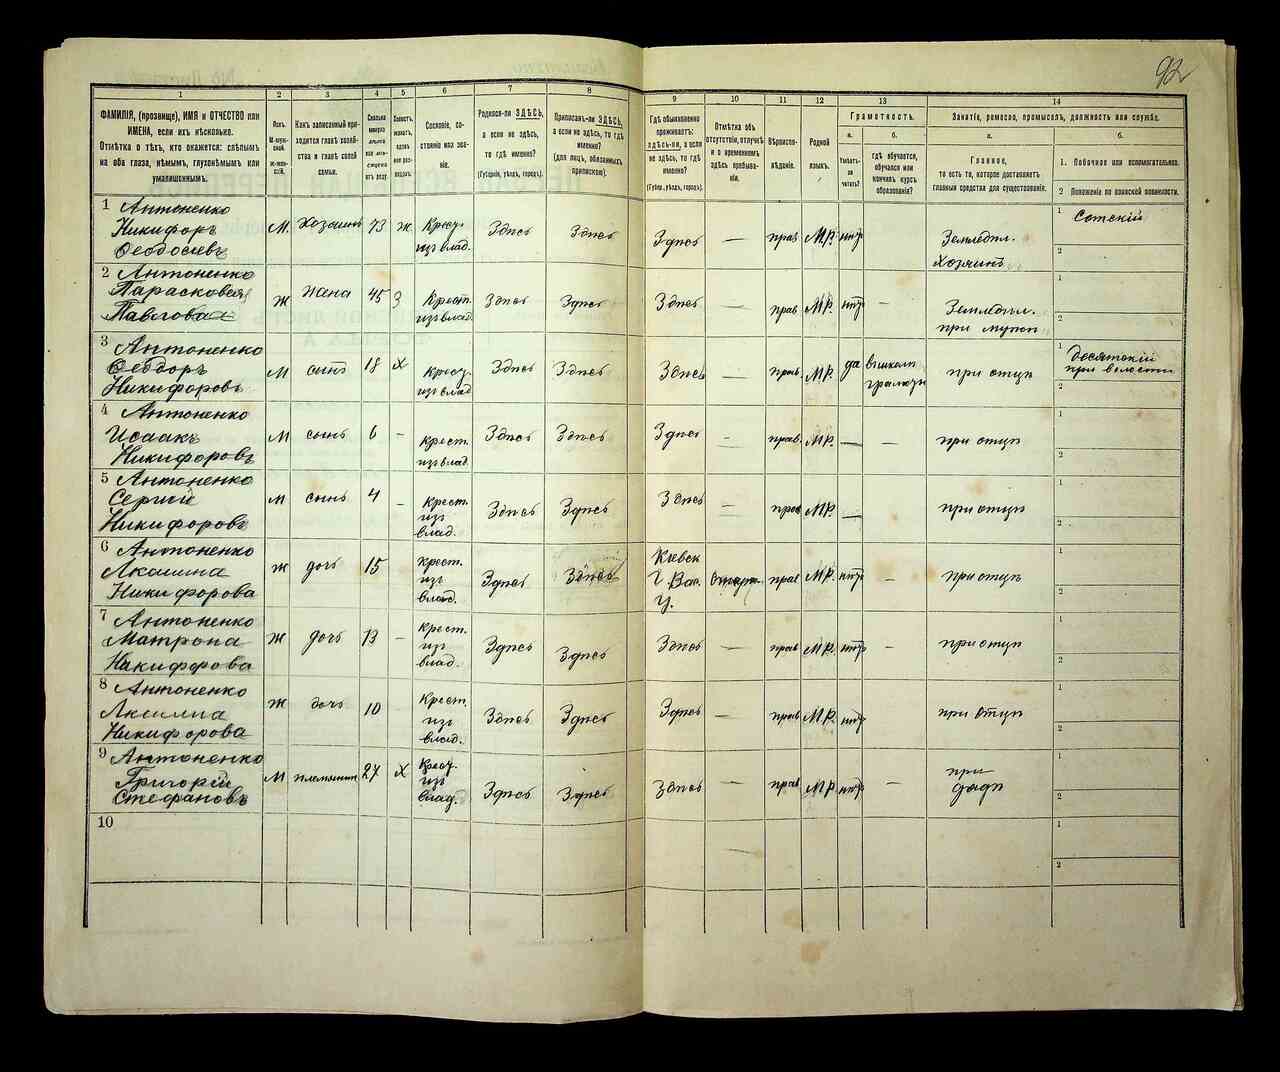 92
1 2 3 4 5 6 7 8 9 10 11 12 13 14
ФАМИЛІЯ, (прозвище), ИМЯ и ОТЧЕСТВО или
ИМЕНА, если ихъ нѣсколько.
Отмѣтка о тѣхъ, кто окажется: слѣпымъ
на оба глаза, нѣмымъ, глухонѣмымъ или
умалишеннымъ.
Полъ.
М-мужской.
Ж-женской.
Какъ записанный приходится
главѣ хозяйства
и главѣ своей
семьи.
Сословіе, состояніе
или званіе.
Родился-ли ЗДѢСЬ,
а если не здѣсь,
то гдѣ именно?
(Губернія, уѣздъ, городъ).
Приписанъ-ли ЗДѢСЬ,
а если не здѣсь, то гдѣ
именно?
(для лицъ, обязанныхъ
припискою).
Гдѣ обыкновенно
проживаетъ:
здѣсь-ли, а если
не здѣсь, то гдѣ
именно?
(Губерн., уѣздъ, городъ).
Отмѣтка объ
отсутствіи, отлучкѣ
и о временномъ
здѣсь пребываніи.
Вѣроисповѣданіе.
Родной
языкъ.
Грамотность.
а.
Умѣетъ-ли
читать?
б.
гдѣ обучается,
обучался или
кончилъ курсъ
образованія?
Занятіе, ремесло, промыселъ, должность или служба.
а.
Главное,
то есть то, которое доставляетъ
главныя средства для существованія.
б.
1. Побочное или вспомогательное.
2 Положеніе по воинской повинности.
1 Антоненко
Никифоръ
Феодосіевъ
М. Хозяинъ 73 ж Крест. изъ влад. Здѣсь Здѣсь Здѣсь — прав М.Р. нѣтъ Земледѣл. Хозяинъ 1 Сотскій
2
2 Антоненко
Парасковея
Павлова
ж жена 45 З Крест. изъ влад. Здѣсь Здѣсь Здѣсь — прав М.Р. нѣтъ - Земледѣл. при мужѣ 1
2
3 Антоненко
Феодоръ
Никифоровъ
М сынъ 18 х Крест. изъ влад Здѣсь Здѣсь Здѣсь — прав. М.Р. да при отцѣ 1 Десятскій при волости
2
4 Антоненко
Исаакъ
Никифоровъ
М сынъ 6 - Крест. изъ влад. Здѣсь Здѣсь Здѣсь — прав. М.Р. — - при отцѣ 1
2
5 Антоненко
Сергій
Никифоровъ
М сынъ 4 - Крест. изъ влад. Здѣсь Здѣсь Здѣсь — прав М.Р. — при отцѣ 1
2
6 Антоненко
Акилина
Никифорова
Ж дочь 15 Крест. изъ влад. Здѣсь Здѣсь Кіевск г Вас. у. прав М.Р. нѣтъ - при отцѣ 1
2
7 Антоненко
Матрона
Никифорова
Ж дочь 13 - Крест. изъ влад. Здѣсь Здѣсь Здѣсь — прав М.Р. нѣтъ - при отцѣ 1
2
8 Антоненко
Акилина
Никифорова
Ж дочь 10 Крест. изъ влад. Здѣсь Здѣсь Здѣсь — прав М.Р. нѣтъ при отцѣ 1
2
9 Антоненко
Григорій
Стефановъ
М племянникъ 27 Х Крест. изъ влад. Здѣсь Здѣсь Здѣсь — прав М.Р. нѣтъ - при дядѣ 1
2
10 1
2